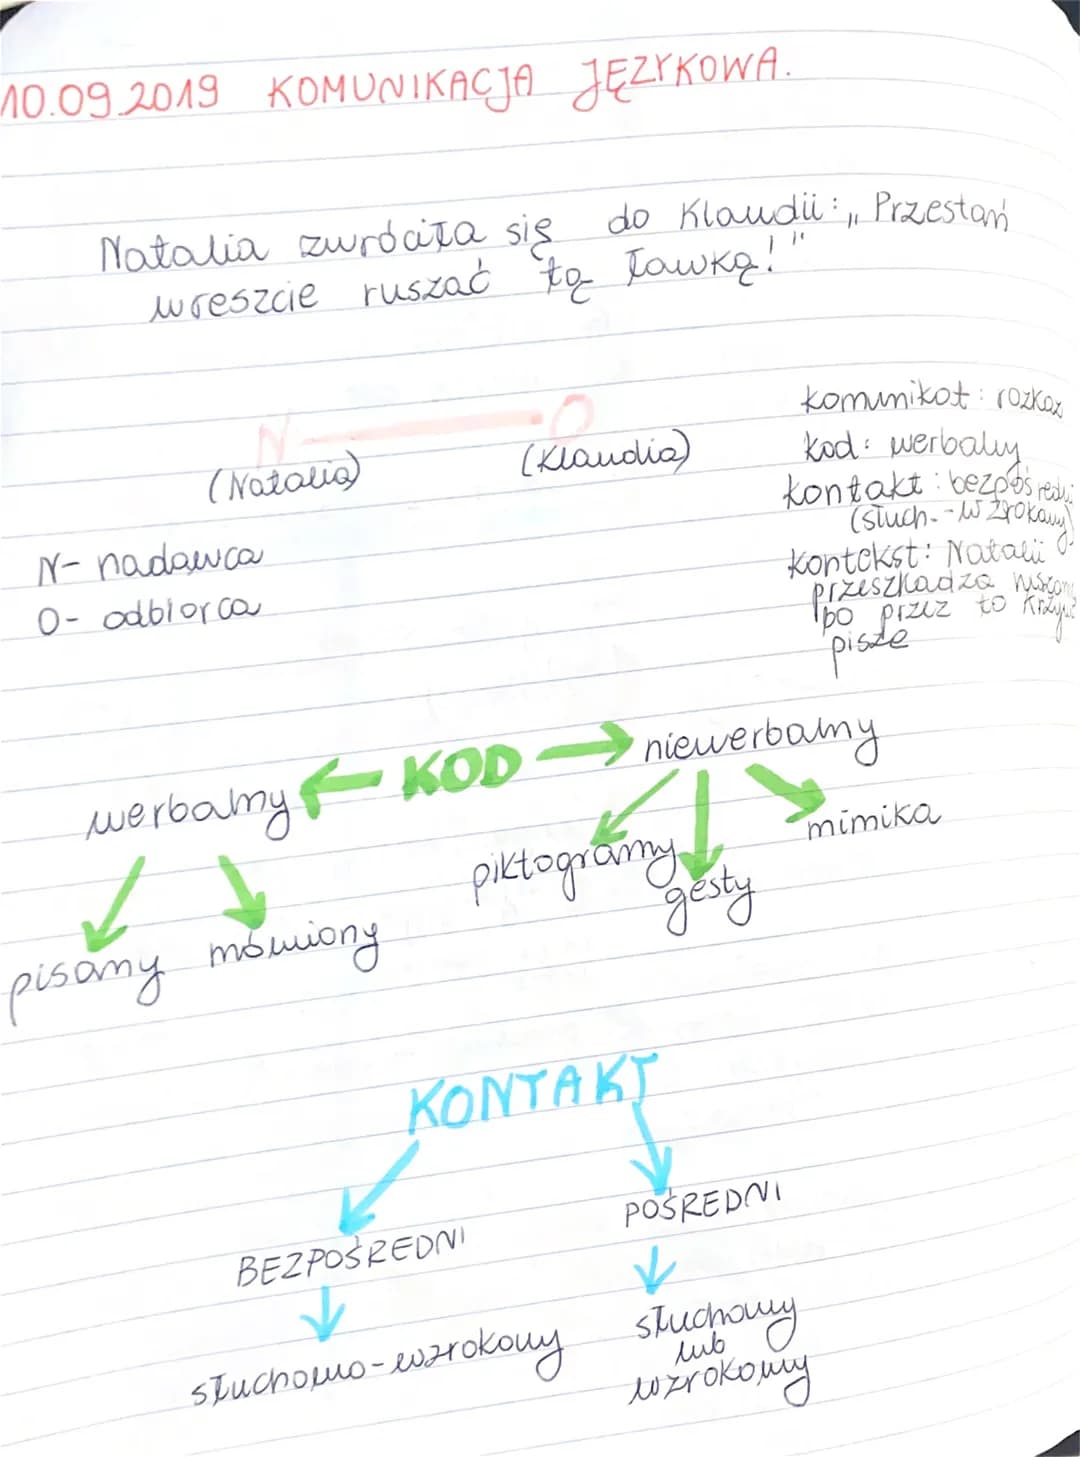 10.09.2019 KOMUNIKACJA JĘZYKOWA.
Natalia zwróciła się do Klaudii: „Przestań
wreszcie ruszać tą ławką!"
N O
(Natalia) (Klaudia)
N- nadawca
O- odbiorca
komunikat: rozkaz
kod: werbalny
kontakt: bezpośredni
(słuch.-wzrokowy)
kontekst: Natalii
przeszkadza
bo przez to krzywo
pisze
werbalny KOD niewerbalny
pisany mówiony
piktogramy gesty mimika
KONTAKT
BEZPOŚREDNI POŚREDNI
słuchowo-wzrokowy
słuchowy
lub
wzrokowy